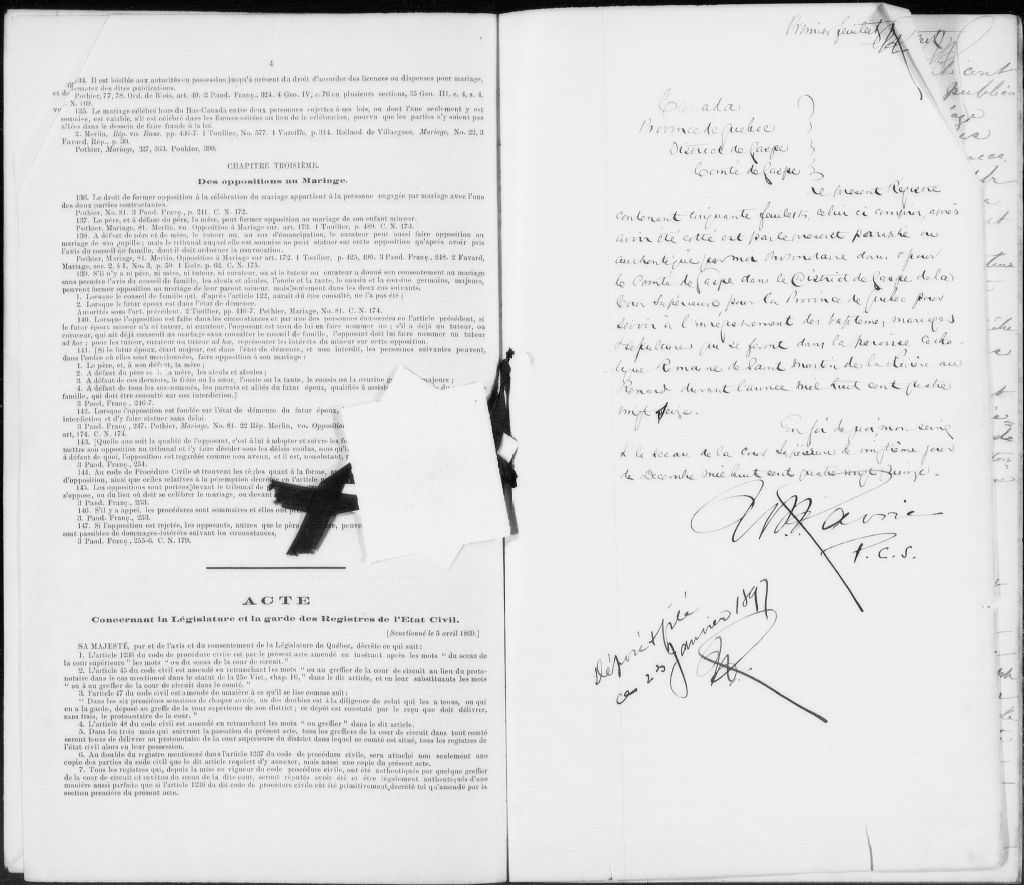 4
134. Il est loisible aux autorités en possession jusqu'à présent du droit d'accorder des licences ou dispenses pour mariage,
d'exempter des dites publications.
Pothier, 77, 78. Ord. de Blois, art. 40. 2 Pand. Franç., 324. 4 Geo. IV, c. 76 en plusieurs sections, 35 Geo. III, c, 4, s. 4,
C. N. 169.
135. Le mariage célébré hors du Bas-Canada entre deux personnes sujettes à ses lois, ou dont l'une seulement y est
soumise, est valable, s'il est célébré dans les formes usitées au lieu de la célébration, pourvu que les parties n'y soient pas
allées dans le dessein de faire fraude à la loi.
2. Merlin, Rép. vo. Bans. pp. 436-7. 1 Toullier, No. 577. 1 Vazeille, p. 314. Rolland de Villargues, Mariage, No. 22, 3
Favard, Rép., p. 39.
Pothier, Mariage, 327, 363. Pouhier, 390.
CHAPITRE TROISIÈME.
Des oppositions au Mariage.
136. Le droit de former opposition à la célébration du mariage appartient à la personne engagée par mariage avec l'une
des deux parties contractantes.
Pothier, No. 81. 3 Pand. Franç., p. 241. C. N. 172.
137. Le père, et à défaut du père, la mère, peut former opposition au mariage de son enfant mineur.
Pothier, Mariage, 81. Merlin, vo. Opposition à Mariage, sur art. 173. 1 Toullier, p. 489. C. N. 173.
138. A défaut de père et de mère, le tuteur ou, au cas d'émancipation, le curateur peut aussi faire opposition au
mariage de son pupille; mais le tribunal auquel elle est soumise ne peut statuer sur cette opposition qu'après avoir pris
l'avis du conseil de famille, dont il doit ordonner la convocation.
Pothier, Mariage, 81. Merlin, Opposition à Mariage, sur art. 172. 1 Toullier, p. 425, 490. 3 Pand. Franç., 248. 2 Favard,
Mariage, sec. 2, § 1, No. 3, p. 59. 1 Delv. p. 62. C. N. 175.
139. S'il n'y a ni père, ni mère, ni tuteur, ni curateur, ou si le tuteur ou curateur a donné son consentement au mariage
sans prendre l'avis du conseil de famille, les aïeuls et aïeules, l'oncle et la tante, le cousin et la cousine germains, majeurs,
peuvent former opposition au mariage de leur parent mineur, mais seulement dans les deux cas suivants.
1. Lorsque le conseil de famille qui, d'après l'article 122, aurait dû être consulté, ne l'a pas été;
2. Lorsque le futur époux est dans l'état de démence.
Autorités sous l'art. précédent. 2 Toullier, pp. 446-7. Pothier, Mariage, No. 81. C. N. 174.
140. Lorsque l'opposition est faite dans les circonstances et par une des personnes énoncées en l'article précédent, si
le futur époux mineur n'a ni tuteur, ni curateur, l'opposant est tenu de lui en faire nommer un; s'il a déjà un tuteur, ou
curateur, qui ait déjà consenti au mariage sans consulter le conseil de famille, l'opposant doit lui faire nommer un tuteur
ad hoc; pour les tuteur, curateur ou tuteur ad hoc, représenter les intérêts du mineur sur cette opposition.
141. [Si le futur époux, étant majeur, est dans l'état de démence, et non interdit, les personnes suivantes peuvent,
dans l'ordre où elles sont mentionnées, faire opposition à son mariage:
1. Le père, et, à son défaut, la mère;
2. A défaut du père et de la mère, les aïeuls et aïeules;
3. A défaut de ces derniers, le frère ou la sœur, l'oncle ou la tante, le cousin ou la cousine majeurs;
4. A défaut de tous les sus-nommés, les parents et alliés du futur époux, qualifiés à
famille, qui doit être consulté sur son interdiction.]
3 Pand. Franç., 246-7.
142. Lorsque l'opposition est fondée sur l'état de démence du futur époux,
interdiction et d'y faire statuer sans délai.
3 Pand. Franç., 247. Pothier, Mariage, No. 81. 22 Rép. Merlin, vo.
art, 174. C. N. 174.
143. [Quelle que soit la qualité de l'opposant, c'est à lui à adopter et suivre les
mettre son opposition au tribunal et l'y faire décider sous les délais voulus, sans qu'il
à défaut de quoi, l'opposition est regardée comme non avenue, et il est, nonobstant,
3 Pand. Franç., 254.
144. Au code de Procédure Civile se trouvent les règles quant à la forme, au
d'opposition, ainsi que celles relatives à la péremption décrétée en l'article
145. Les oppositions sont portées devant le tribunal de
s'oppose, ou du lieu où doit se célébrer le mariage, ou devant
3 Pand. Franç., 253.
146. S'il y a appel, les procédures sont sommaires et elles ont
3. Pand. Franç., 253.
147. Si l'opposition est rejetée, les opposants, autres que le père
sont passibles de dommages-intérêts suivant les circonstances,
3 Pand. Franç., 255-6. C. N. 179.
ACTE
Concernant la Législature et la garde des Registres de l'Etat Civil.
[Sanctionné le 5 avril 1869.]
SA MAJESTÉ, par et de l'avis et du consentement de la Législature de Québec, décrète ce qui suit:
1. L'article 1236 du code de procédure civile est par le présent acte amendé en insérant après les mots " du sceau de
la cour supérieure " les mots " ou du sceau de la cour de circuit."
2. L'article 45 du code civil est amendé en retranchant les mots " ou au greffier de la cour de circuit au lieu du proto-
notaire dans le cas mentionné dans le statut de la 25e Vict., chap. 16," dans le dit article, et en leur substituants les mots
" ou à un greffier de la cour de circuit dans le comté."
3. l'article 47 du code civil est amendé de manière à ce qu'il se lise comme suit:
" Dans les six premières semaines de chaque année, un des doubles est à la diligence de celui qui les a tenus, ou qui
en a la garde, déposé au greffe de la cour supérieure de son district; ce dépôt est constaté par le reçu que doit délivrer,
sans frais, le protonotaire de la cour. "
4. L'article 48 du code civil est amendé en retranchant les mots " ou greffier " dans le dit article.
5. Dans les trois mois qui suivront la passation du présent acte, tous les greffiers de la cour de circuit dans tout comté
seront tenus de délivrer au protonotaire de la cour supérieure du district dans lequel ce comté est situé, tous les registres de
l'état civil alors en leur possession.
6. Au double du registre mentionné dans l'article 1237 du code de procédure civile, sera attaché non seulement une
copie des parties du code civil que le dit article requiert d'y annexer, mais aussi une copie du présent acte.
7. Tous les registres qui, depuis la mise en vigueur du code procédure civile, ont été authentiqués par quelque greffier
de la cour de circuit et revêtus du sceau de la dite cour, seront réputés avoir été et être légalement authentiqués d'une
manière aussi parfaite que si l'article 1236 du dit code de procédure civile eût été primitivement décrété tel qu'amendé par la
section première du présent acte.
Premier feuillet
Canada
Province de Quebec
District de Gaspe
Comté de Gaspe
Le present Registre
contenant cinquante feuillets, celui ci compris, après
avoir été cotté est par le present paraphé ou
authentiqué par moi Protonotaire dans & pour
le Comté de Gaspe dans le District de Gaspe de la
Cour Supérieure pour la Province de Quebec pour
servir à l'enrégistrement des baptemes mariages
& sépultures qui se feront dans la paroisse Catho-
lique Romaine de Saint Martin de la Rivière au
Renard durant l'année mil huit cent quatre
vingt seize.
En foi de quoi mon seing
& le sceau de la Cour Supérieure ce vingtième jour
de Decembre mil huit cent quatre vingt quinze.
P. C. S.
Déposé & filé
ce 23 Janvier 1897